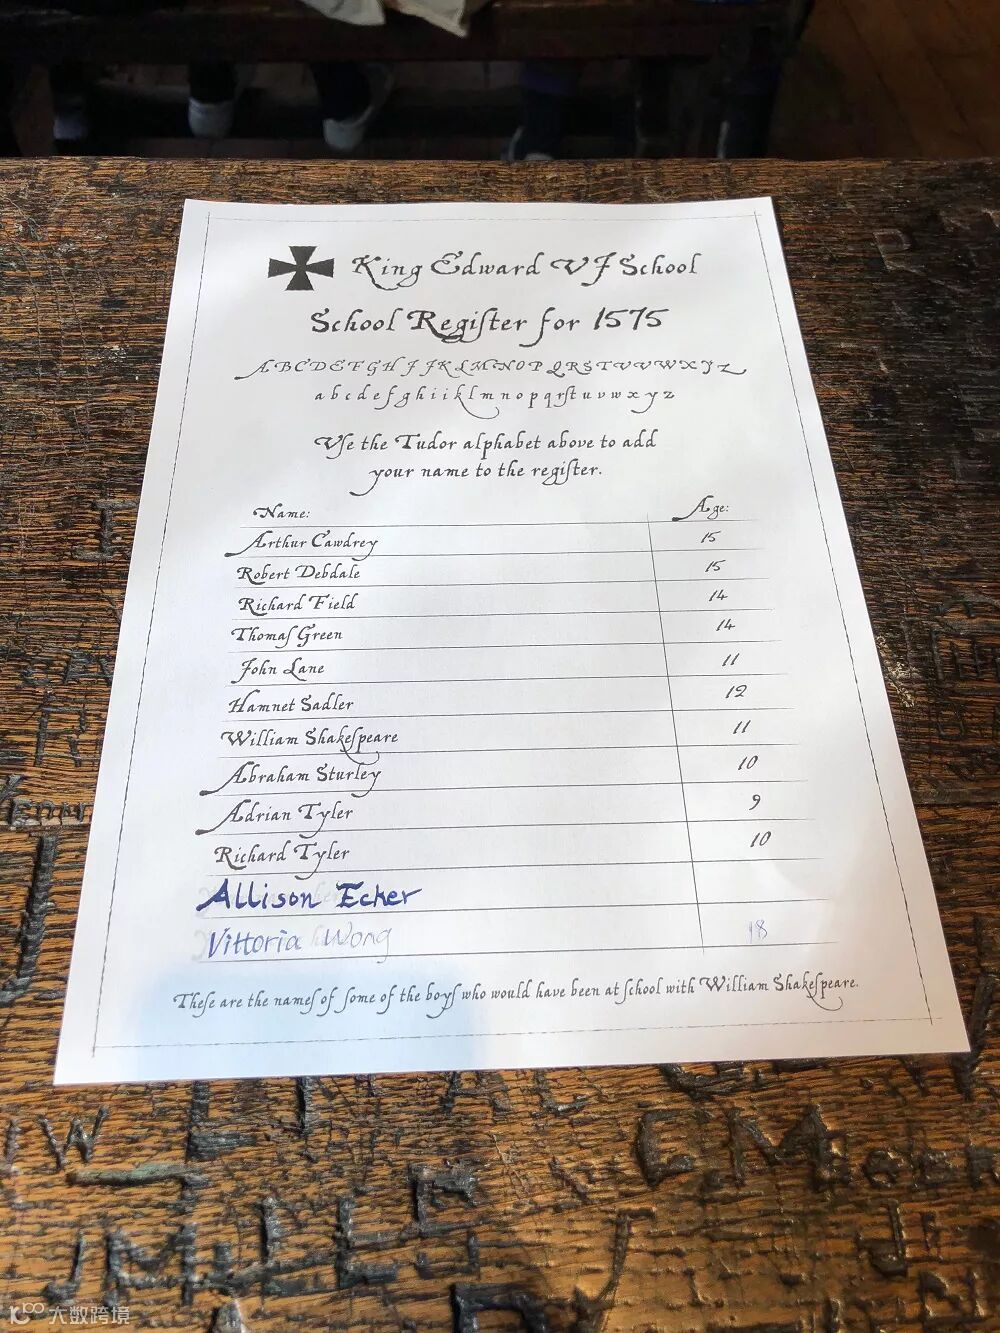 King Edward VI School
School Regiſter for 1575
A B C D E F G H I J K L M N O P Q R S T U V W X Y Z
a b c d e f g h i j k l m n o p q r ſ t u v w x y z
Vſe the Tudor alphabet above to add
your name to the regiſter.
Name: Age:
Arthur Cawdrey 15
Robert Debdale 15
Richard Field 14
Thomaſ Green 14
John Lane 11
Hamnet Sadler 12
William Shakeſpeare 11
Abraham Sturley 10
Adrian Tyler 9
Richard Tyler 10
Allison Ecker
Vittoria Wong 18
Theſe are the nameſ of ſome of the boyſ who would have been at ſchool with William Shakeſpeare.
W
大数跨境